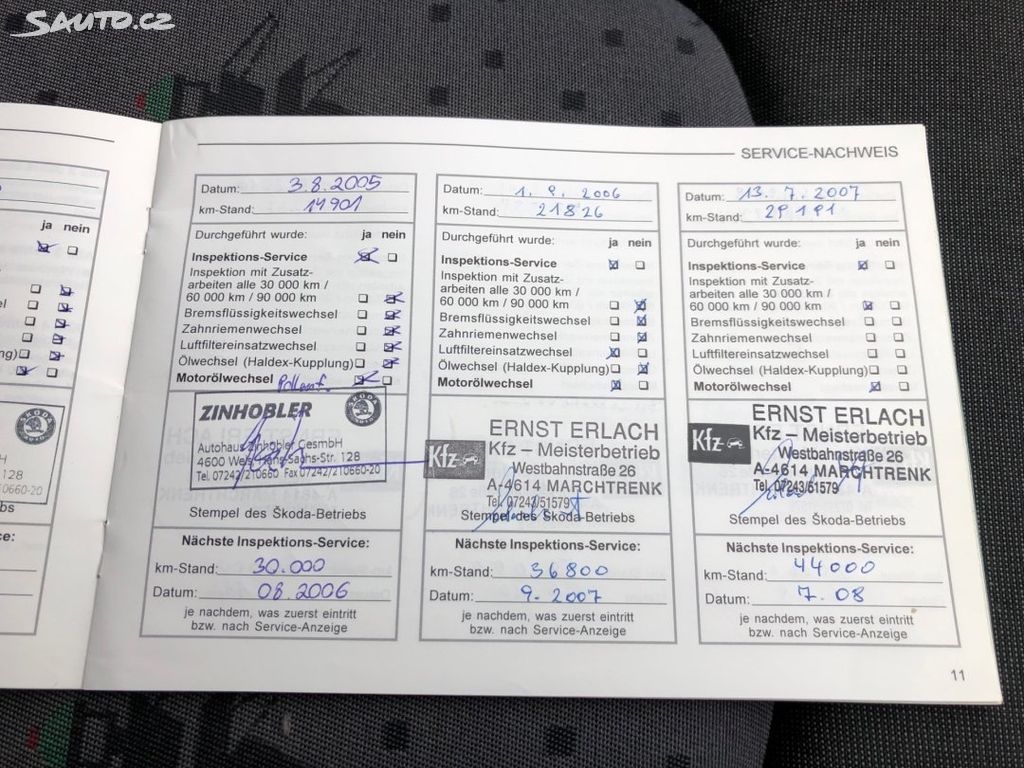 Sauto.cz
SERVICE-NACHWEIS
ja nein
el
ng)
ŠKODA
28
10660-20
ebs
ce:
Datum: 3.8.2005
km-Stand: 14901
Durchgeführt wurde: ja nein
Inspektions-Service
Inspektion mit Zusatz-
arbeiten alle 30 000 km /
60 000 km / 90 000 km
Bremsflüssigkeitswechsel
Zahnriemenwechsel
Luftfiltereinsatzwechsel
Ölwechsel (Haldex-Kupplung)
Motorölwechsel
ZINHOBLER
ŠKODA
Autohaus Zinhobler GesmbH
4600 Wels, Hans-Sachs-Str. 128
Tel. 07242/210660 Fax 07242/210660-20
Stempel des Škoda-Betriebs
Nächste Inspektions-Service:
km-Stand: 30.000
Datum: 08.2006
je nachdem, was zuerst eintritt
bzw. nach Service-Anzeige
Datum: 1. 9. 2006
km-Stand: 21826
Durchgeführt wurde: ja nein
Inspektions-Service
Inspektion mit Zusatz-
arbeiten alle 30 000 km /
60 000 km / 90 000 km
Bremsflüssigkeitswechsel
Zahnriemenwechsel
Luftfiltereinsatzwechsel
Ölwechsel (Haldex-Kupplung)
Motorölwechsel
ERNST ERLACH
Kfz
Kfz – Meisterbetrieb
Westbahnstraße 26
A-4614 MARCHTRENK
Tel. 07243/51579
Stempel des Škoda-Betriebs
Nächste Inspektions-Service:
km-Stand: 36800
Datum: 9. 2007
je nachdem, was zuerst eintritt
bzw. nach Service-Anzeige
Datum: 13. 7. 2007
km-Stand: 29191
Durchgeführt wurde: ja nein
Inspektions-Service
Inspektion mit Zusatz-
arbeiten alle 30 000 km /
60 000 km / 90 000 km
Bremsflüssigkeitswechsel
Zahnriemenwechsel
Luftfiltereinsatzwechsel
Ölwechsel (Haldex-Kupplung)
Motorölwechsel
ERNST ERLACH
Kfz
Kfz – Meisterbetrieb
Westbahnstraße 26
A-4614 MARCHTRENK
Tel. 07243/51579
Stempel des Škoda-Betriebs
Nächste Inspektions-Service:
km-Stand: 44000
Datum: 7. 08
je nachdem, was zuerst eintritt
bzw. nach Service-Anzeige
11